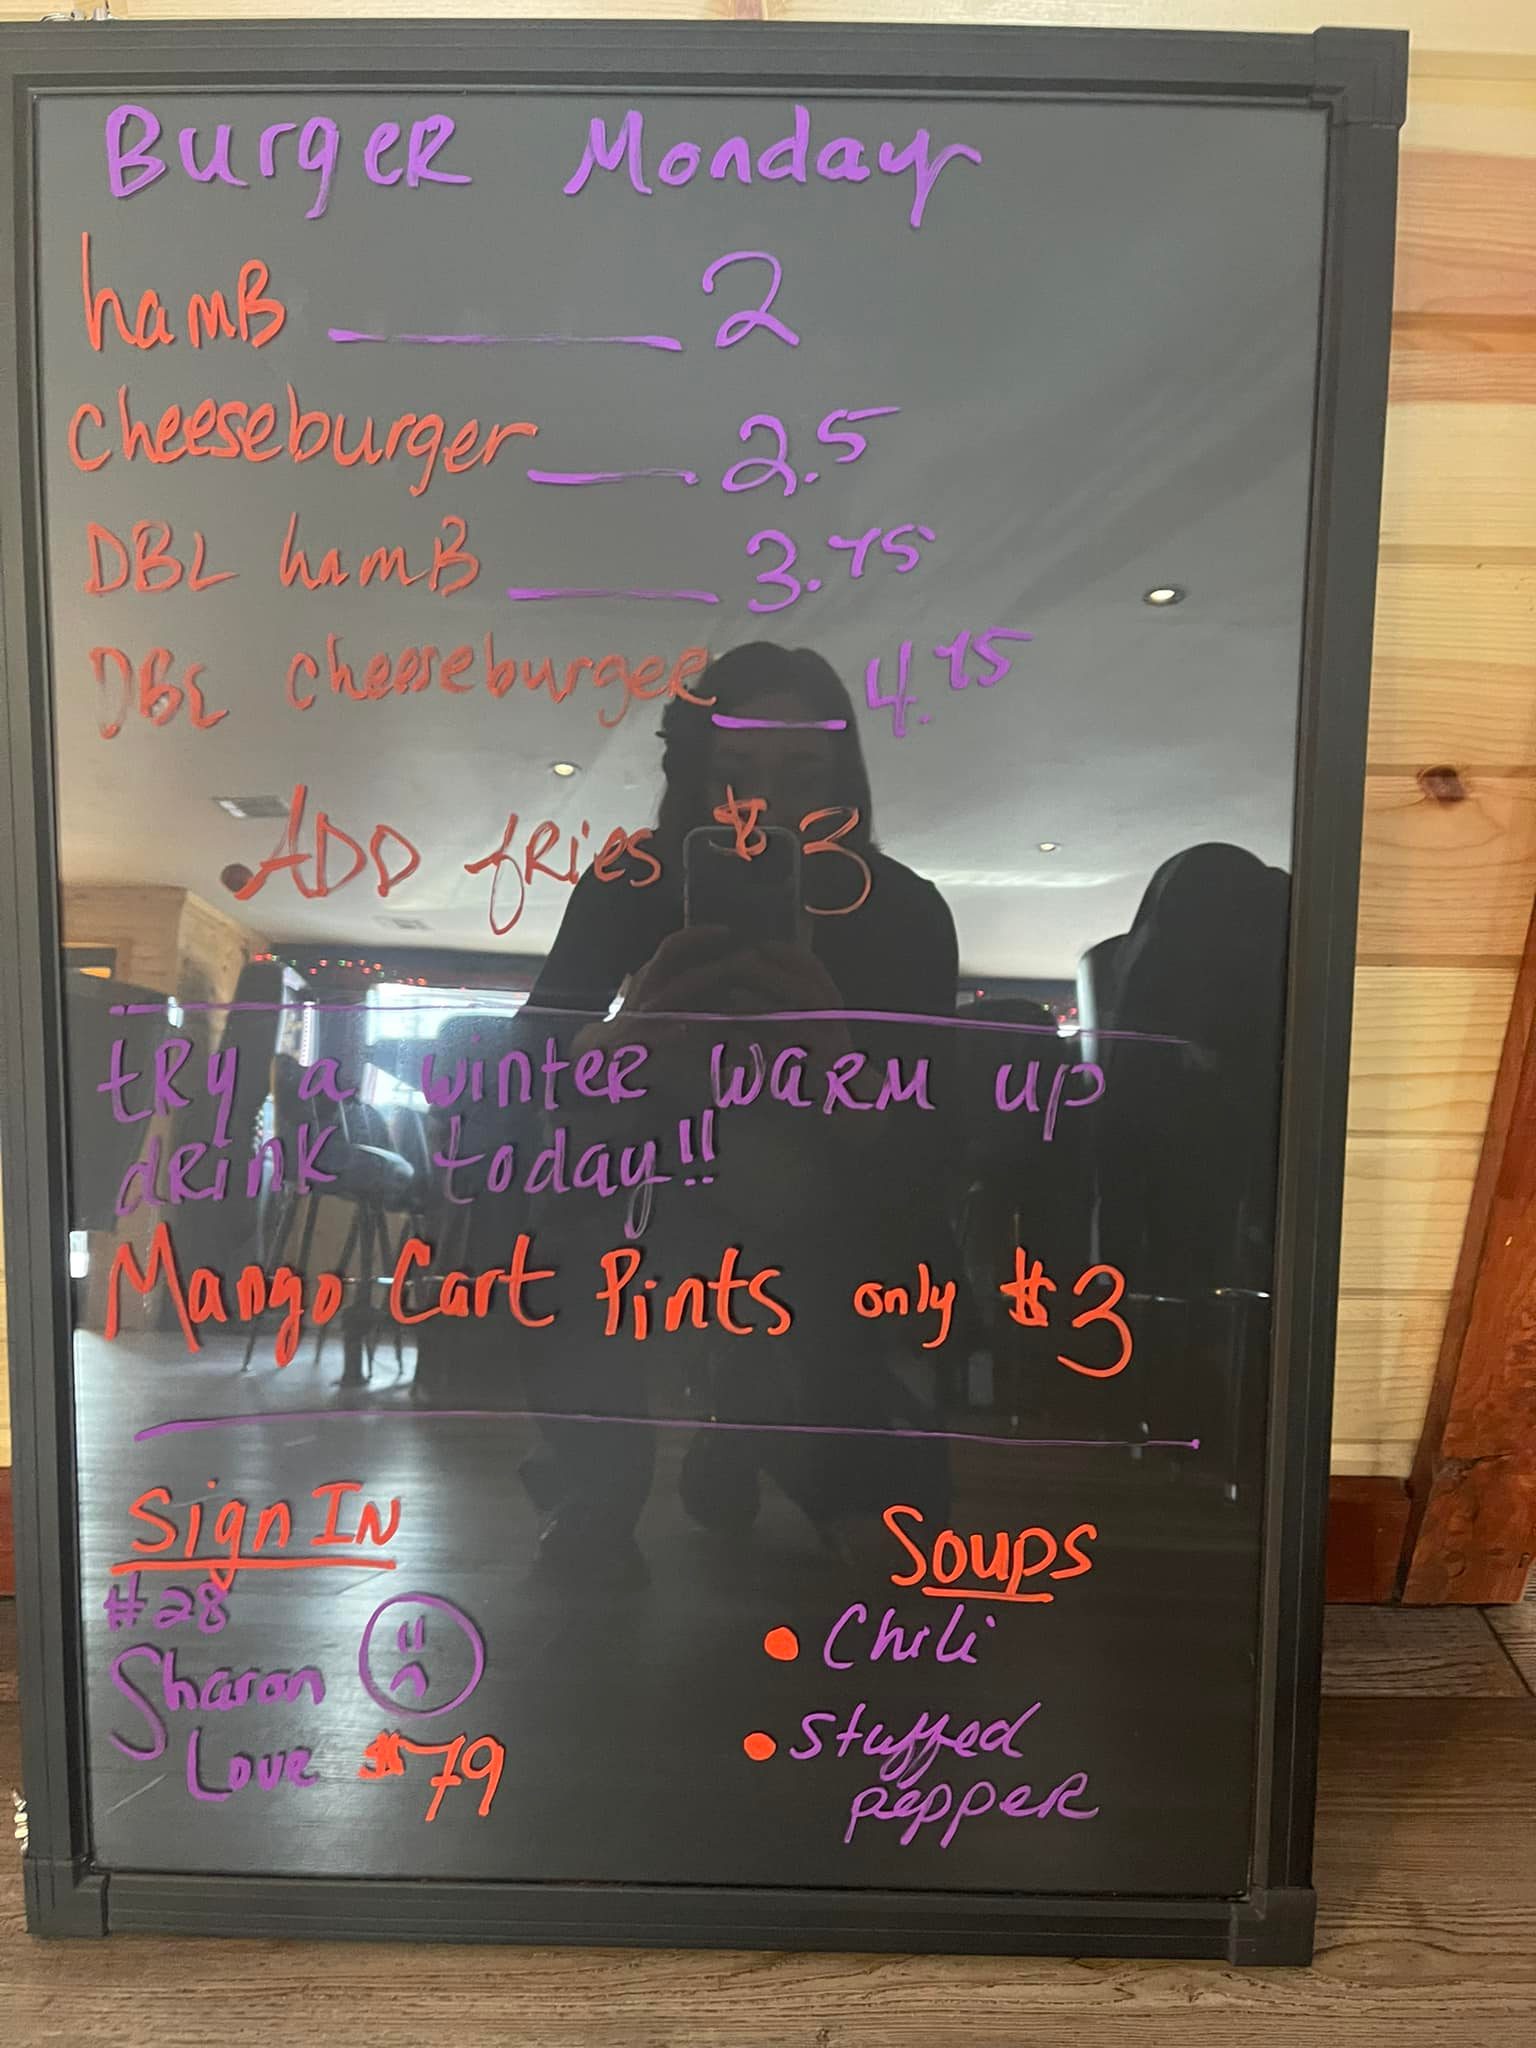 BurgeR Monday
hamB 2
Cheeseburger 2.5
DBL hamB 3.75
DBL cheeseburgeR 4.75
ADD fRies $3
tRy a winteR waRM up
dRink today!!
Mango Cart Pints only $3
Sign IN
#28
Sharon
Love $79
Soups
• Chili
• Stuffed
peppeR